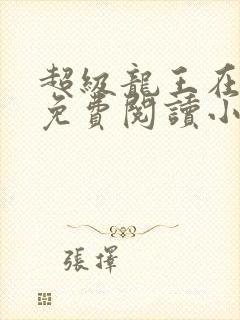 超級龍王在
免費閱讀小
張擇